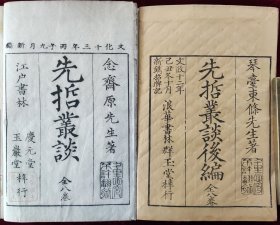 琴臺東條先生著
先哲叢談後編 全八卷
文政十二年
己丑冬十月
浪華書林群玉堂梓行
文化十三年丙子九月新鐫
念齋原先生著
先哲叢談 全八卷
江戶書林
慶元堂
玉巖堂
梓行